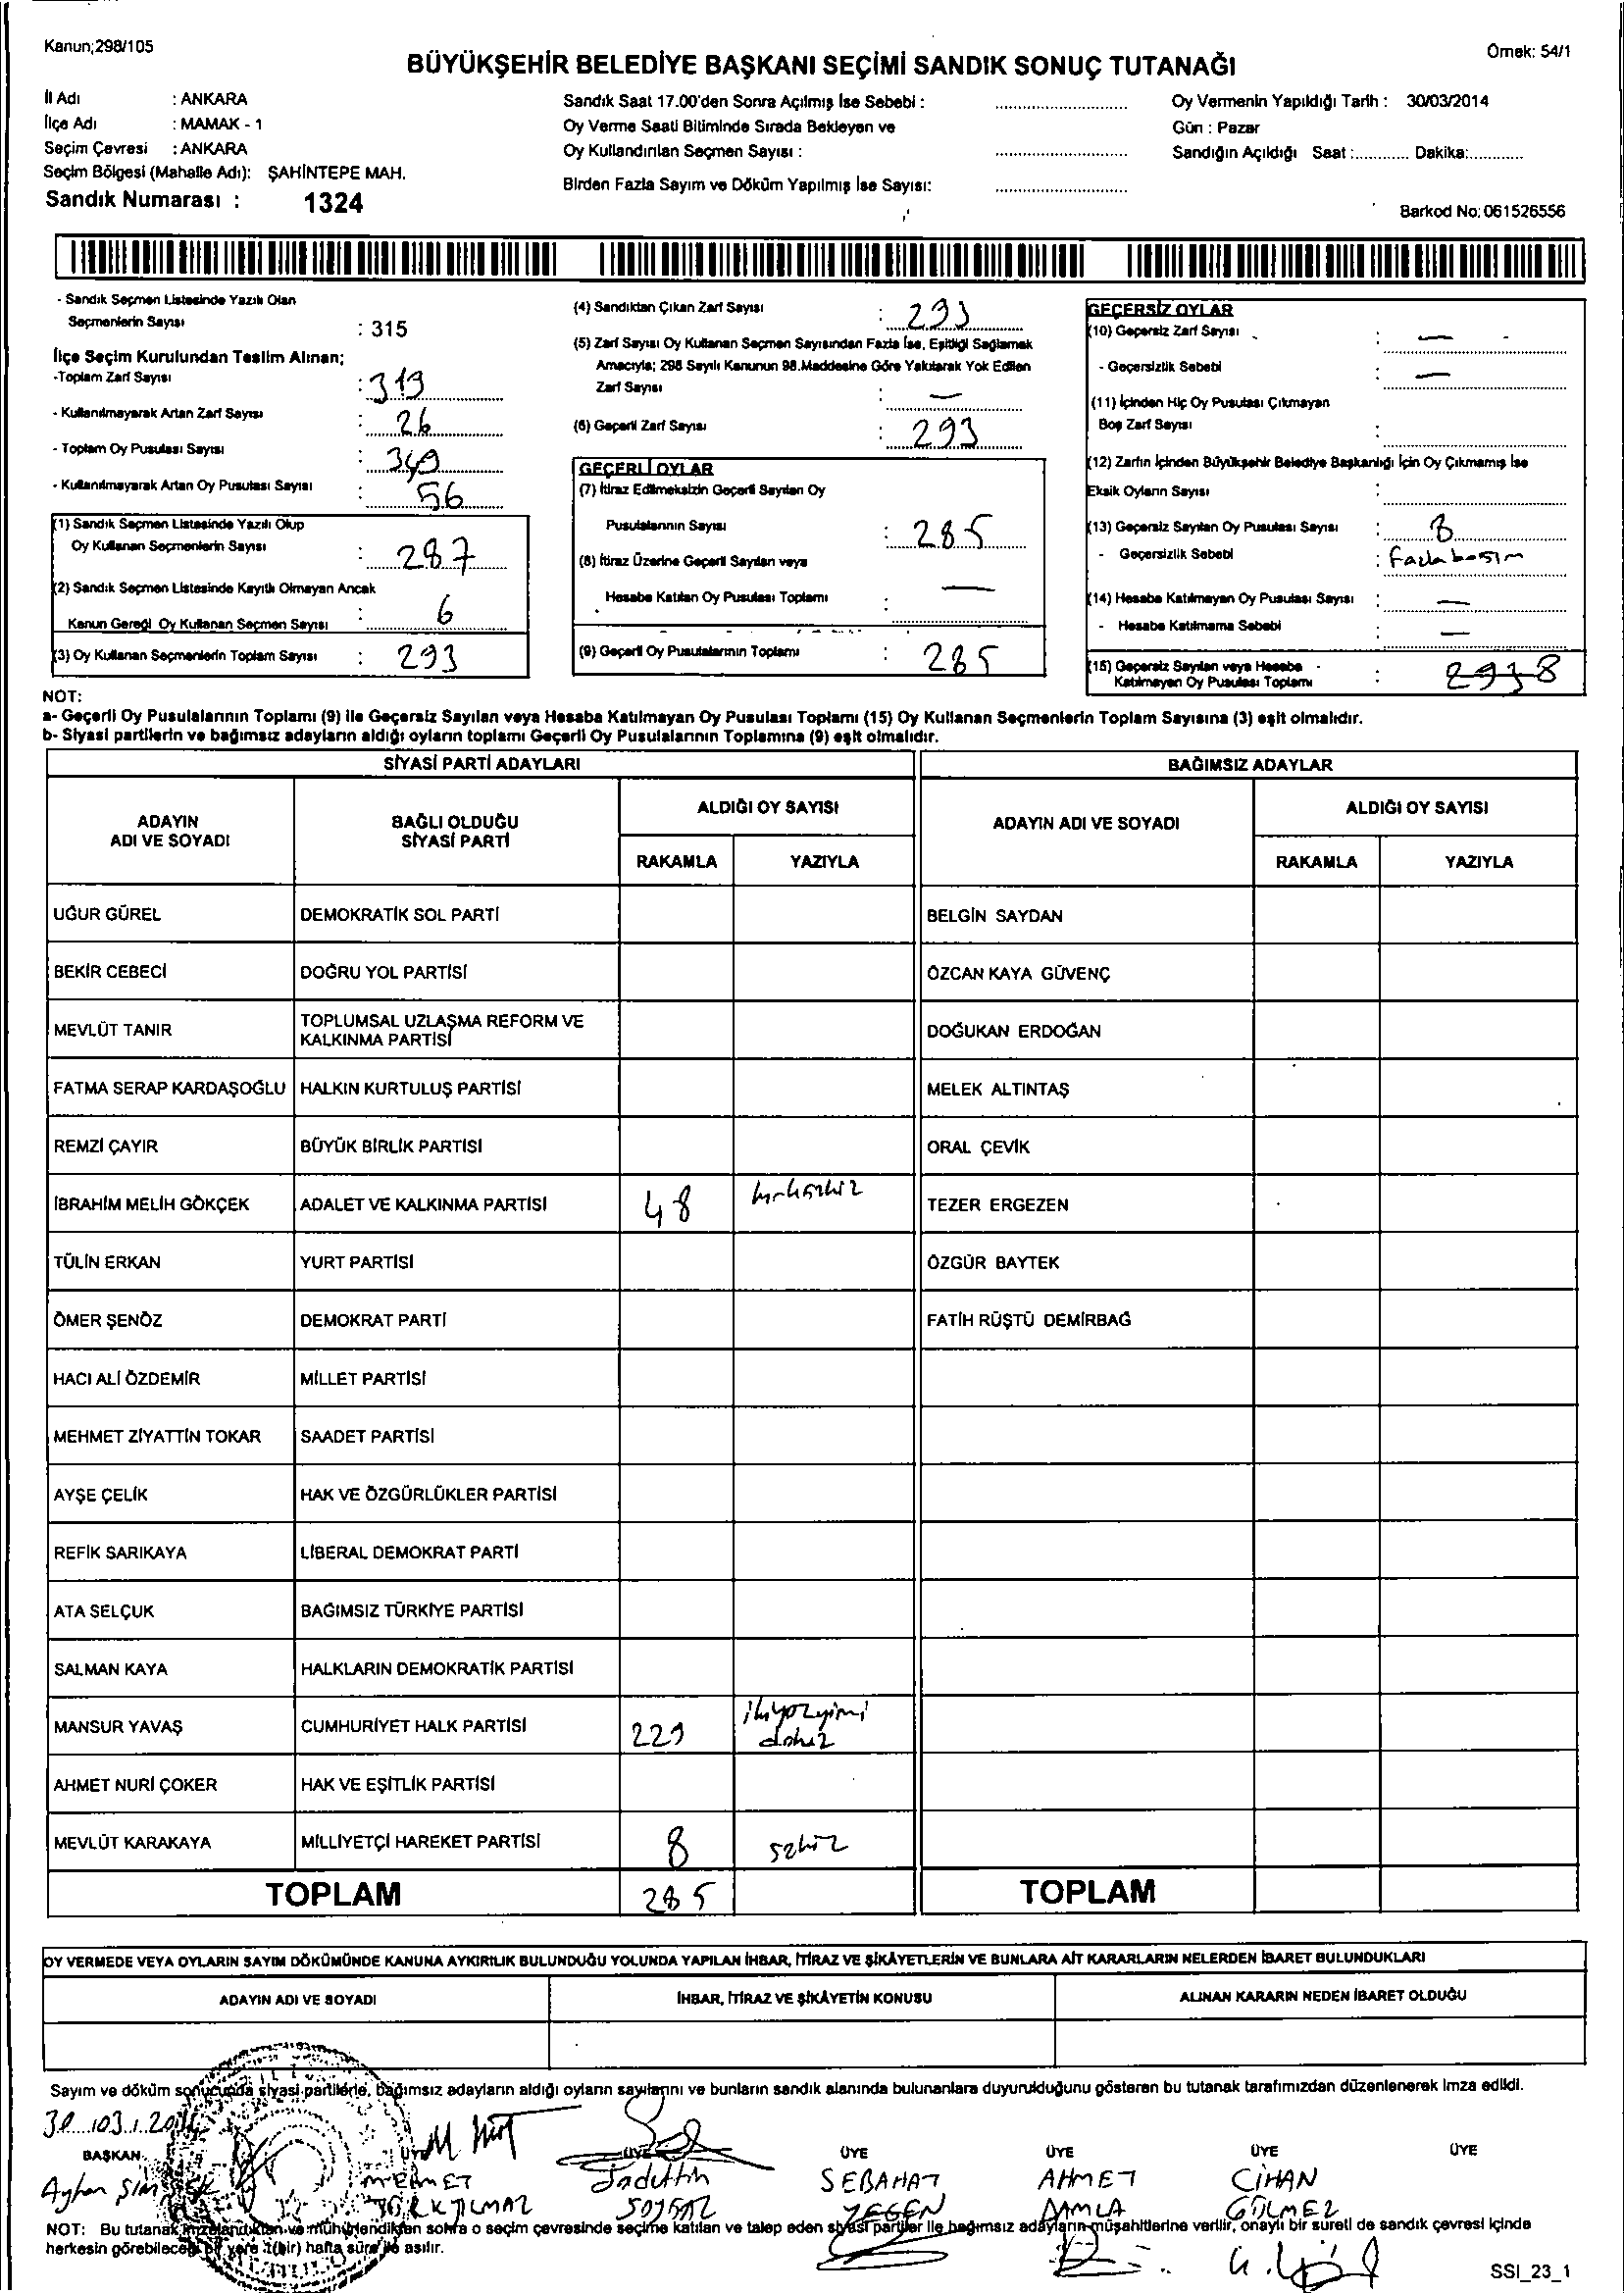 Kanun;298/105
Örnek: 54/1
BÜYÜKŞEHİR BELEDİYE BAŞKANI SEÇİMİ SANDIK SONUÇ TUTANAĞI
İl Adı : ANKARA
İlçe Adı : MAMAK - 1
Seçim Çevresi : ANKARA
Seçim Bölgesi (Mahalle Adı): ŞAHİNTEPE MAH.
Sandık Numarası : 1324
Sandık Saat 17.00'den Sonra Açılmış İse Sebebi :
Oy Verme Saati Bitiminde Sırada Bekleyen ve
Oy Kullandırılan Seçmen Sayısı :
Birden Fazla Sayım ve Döküm Yapılmış İse Sayısı:
Oy Vermenin Yapıldığı Tarih : 30/03/2014
Gün : Pazar
Sandığın Açıldığı Saat :............ Dakika:............
Barkod No: 061526556
- Sandık Seçmen Listesinde Yazılı Olan
Seçmenlerin Sayısı : 315
İlçe Seçim Kurulundan Teslim Alınan;
-Toplam Zarf Sayısı : 319
- Kullanılmayarak Artan Zarf Sayısı : 26
- Toplam Oy Pusulası Sayısı : 349
- Kullanılmayarak Artan Oy Pusulası Sayısı : 56
(1) Sandık Seçmen Listesinde Yazılı Olup
Oy Kullanan Seçmenlerin Sayısı : 287
(2) Sandık Seçmen Listesinde Kayıtlı Olmayan Ancak
Kanun Gereği Oy Kullanan Seçmen Sayısı : 6
(3) Oy Kullanan Seçmenlerin Toplam Sayısı : 293
(4) Sandıktan Çıkan Zarf Sayısı : 293
(5) Zarf Sayısı Oy Kullanan Seçmen Sayısından Fazla İse, Eşitliği Sağlamak
Amacıyla; 298 Sayılı Kanunun 98.Maddesine Göre Yakılarak Yok Edilen
Zarf Sayısı : —
(6) Geçerli Zarf Sayısı : 293
GEÇERLİ OYLAR
(7) İtiraz Edilmeksizin Geçerli Sayılan Oy
Pusulalarının Sayısı : 285
(8) İtiraz Üzerine Geçerli Sayılan veya
Hesaba Katılan Oy Pusulası Toplamı : —
(9) Geçerli Oy Pusulalarının Toplamı : 285
GEÇERSİZ OYLAR
(10) Geçersiz Zarf Sayısı : —
- Geçersizlik Sebebi : —
(11) İçinden Hiç Oy Pusulası Çıkmayan
Boş Zarf Sayısı :
(12) Zarfın İçinden Büyükşehir Belediye Başkanlığı İçin Oy Çıkmamış İse
Eksik Oyların Sayısı :
(13) Geçersiz Sayılan Oy Pusulası Sayısı : 8
- Geçersizlik Sebebi : fazla basım
(14) Hesaba Katılmayan Oy Pusulası Sayısı : —
- Hesaba Katılmama Sebebi : —
(15) Geçersiz Sayılan veya Hesaba
Katılmayan Oy Pusulası Toplamı : 293 8
NOT:
a- Geçerli Oy Pusulalarının Toplamı (9) ile Geçersiz Sayılan veya Hesaba Katılmayan Oy Pusulası Toplamı (15) Oy Kullanan Seçmenlerin Toplam Sayısına (3) eşit olmalıdır.
b- Siyasi partilerin ve bağımsız adayların aldığı oyların toplamı Geçerli Oy Pusulalarının Toplamına (9) eşit olmalıdır.
SİYASİ PARTİ ADAYLARI BAĞIMSIZ ADAYLAR
ADAYIN
ADI VE SOYADI
BAĞLI OLDUĞU
SİYASİ PARTİ
ALDIĞI OY SAYISI
RAKAMLA YAZIYLA
ADAYIN ADI VE SOYADI
ALDIĞI OY SAYISI
RAKAMLA YAZIYLA
UĞUR GÜREL DEMOKRATİK SOL PARTİ BELGİN SAYDAN
BEKİR CEBECİ DOĞRU YOL PARTİSİ ÖZCAN KAYA GÜVENÇ
MEVLÜT TANIR TOPLUMSAL UZLAŞMA REFORM VE
KALKINMA PARTİSİ DOĞUKAN ERDOĞAN
FATMA SERAP KARDAŞOĞLU HALKIN KURTULUŞ PARTİSİ MELEK ALTINTAŞ
REMZİ ÇAYIR BÜYÜK BİRLİK PARTİSİ ORAL ÇEVİK
İBRAHİM MELİH GÖKÇEK ADALET VE KALKINMA PARTİSİ 48 kırksekiz TEZER ERGEZEN
TÜLİN ERKAN YURT PARTİSİ ÖZGÜR BAYTEK
ÖMER ŞENÖZ DEMOKRAT PARTİ FATİH RÜŞTÜ DEMİRBAĞ
HACI ALİ ÖZDEMİR MİLLET PARTİSİ
MEHMET ZİYATTİN TOKAR SAADET PARTİSİ
AYŞE ÇELİK HAK VE ÖZGÜRLÜKLER PARTİSİ
REFİK SARIKAYA LİBERAL DEMOKRAT PARTİ
ATA SELÇUK BAĞIMSIZ TÜRKİYE PARTİSİ
SALMAN KAYA HALKLARIN DEMOKRATİK PARTİSİ
MANSUR YAVAŞ CUMHURİYET HALK PARTİSİ 229 ikiyüzyirmi
dokuz
AHMET NURİ ÇOKER HAK VE EŞİTLİK PARTİSİ
MEVLÜT KARAKAYA MİLLİYETÇİ HAREKET PARTİSİ 8 sekiz
TOPLAM 285 TOPLAM
OY VERMEDE VEYA OYLARIN SAYIM DÖKÜMÜNDE KANUNA AYKIRILIK BULUNDUĞU YOLUNDA YAPILAN İHBAR, İTİRAZ VE ŞİKÂYETLERİN VE BUNLARA AİT KARARLARIN NELERDEN İBARET BULUNDUKLARI
ADAYIN ADI VE SOYADI İHBAR, İTİRAZ VE ŞİKÂYETİN KONUSU ALINAN KARARIN NEDEN İBARET OLDUĞU
Sayım ve döküm sonucunda siyasi partilerle, bağımsız adayların aldığı oyların sayılarını ve bunların sandık alanında bulunanlara duyurulduğunu gösteren bu tutanak tarafımızdan düzenlenerek imza edildi.
30/03/2014
BAŞKAN ÜYE ÜYE ÜYE ÜYE ÜYE ÜYE
Ayhan MEHMET Sadettin SEBAHAT AHMET CİHAN
TÜRKYILMAZ SOYSAL YEGEN DAMLA GÜLMEZ
NOT: Bu tutanak imzalandıktan ve mühürlendikten sonra o seçim çevresinde seçime katılan ve talep eden siyasi partiler ile bağımsız adayların müşahitlerine verilir, onaylı bir sureti de sandık çevresi içinde
herkesin görebileceği bir yere 1(bir) hafta süre ile asılır.
SSI_23_1